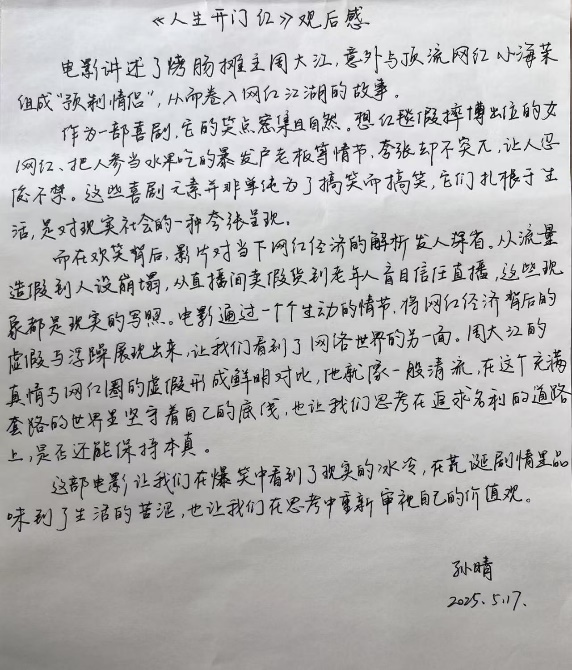 《人生开门红》观后感
电影讲述了烤肠摊主周大江,意外与顶流网红小海茉
组成“预制情侣”,从而卷入网红江湖的故事。
作为一部喜剧,它的笑点密集且自然。想红毯假摔博出位的女
网红、把人参当水果吃的暴发户老板等情节,夸张却不突兀,让人忍
俊不禁。这些喜剧元素并非单纯为了搞笑而搞笑,它们扎根于生
活,是对现实社会的一种夸张呈现。
而在欢笑背后,影片对当下网红经济的解析发人深省。从流量
造假到人设崩塌,从直播间卖假货到老年人盲目信任直播,这些现
象都是现实的写照。电影通过一个个生动的情节,将网红经济背后的
虚假与浮躁展现出来,让我们看到了网络世界的另一面。周大江的
真情与网红圈的虚假形成鲜明对比,他就像一般清流,在这个充满
套路的世界里坚守着自己的底线,也让我们思考在追求名利的道路
上,是否还能保持本真。
这部电影让我们在爆笑中看到了现实的冰冷,在荒诞剧情里品
味到了生活的苦涩,也让我们在思考中重新审视自己的价值观。
孙晴
2025.5.17.